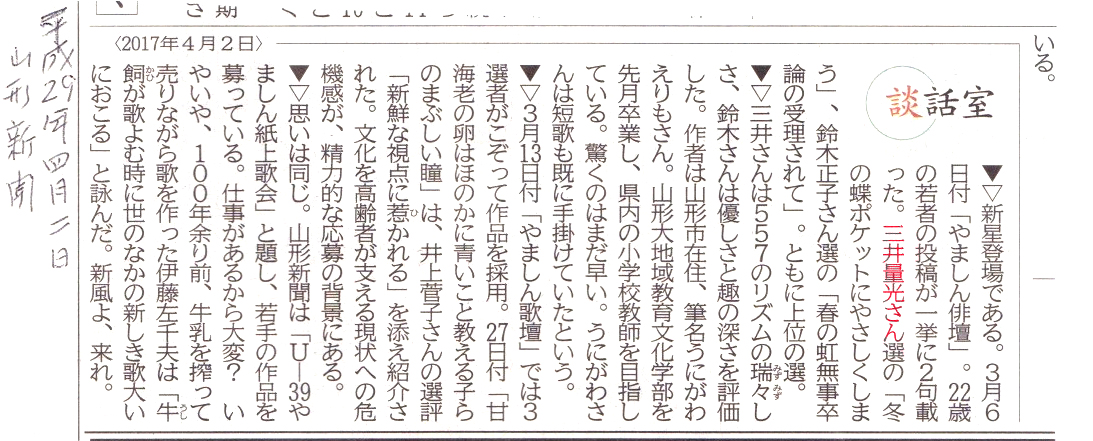 いる。
談話室
▼▽新星登場である。3月6
日付「やましん俳壇」。22歳
の若者の投稿が一挙に2句載
った。三井量光さん選の「冬
の蝶ポケットにやさしくしま
う」、鈴木正子さん選の「春の虹無事卒
論の受理されて」。ともに上位の選。
▼▽三井さんは557のリズムの瑞々し
さ、鈴木さんは優しさと趣の深さを評価
した。作者は山形市在住、筆名うにがわ
えりもさん。山形大地域教育文化学部を
先月卒業し、県内の小学校教師を目指し
ている。驚くのはまだ早い。うにがわさ
んは短歌も既に手掛けていたという。
▼▽3月13日付「やましん歌壇」では3
選者がこぞって作品を採用。27日付「甘
海老の卵はほのかに青いこと教える子ら
のまぶしい瞳」は、井上菅子さんの選評
「新鮮な視点に惹かれる」を添え紹介さ
れた。文化を高齢者が支える現状への危
機感が、精力的な応募の背景にある。
▼▽思いは同じ。山形新聞は「U―39や
ましん紙上歌会」と題し、若手の作品を
募っている。仕事があるから大変? い
やいや、100年余り前、牛乳を搾って
売りながら歌を作った伊藤左千夫は「牛
飼が歌よむ時に世のなかの新しき歌大い
におこる」と詠んだ。新風よ、来れ。
〈2017年4月2日〉
平成29年四月二日
山形新聞